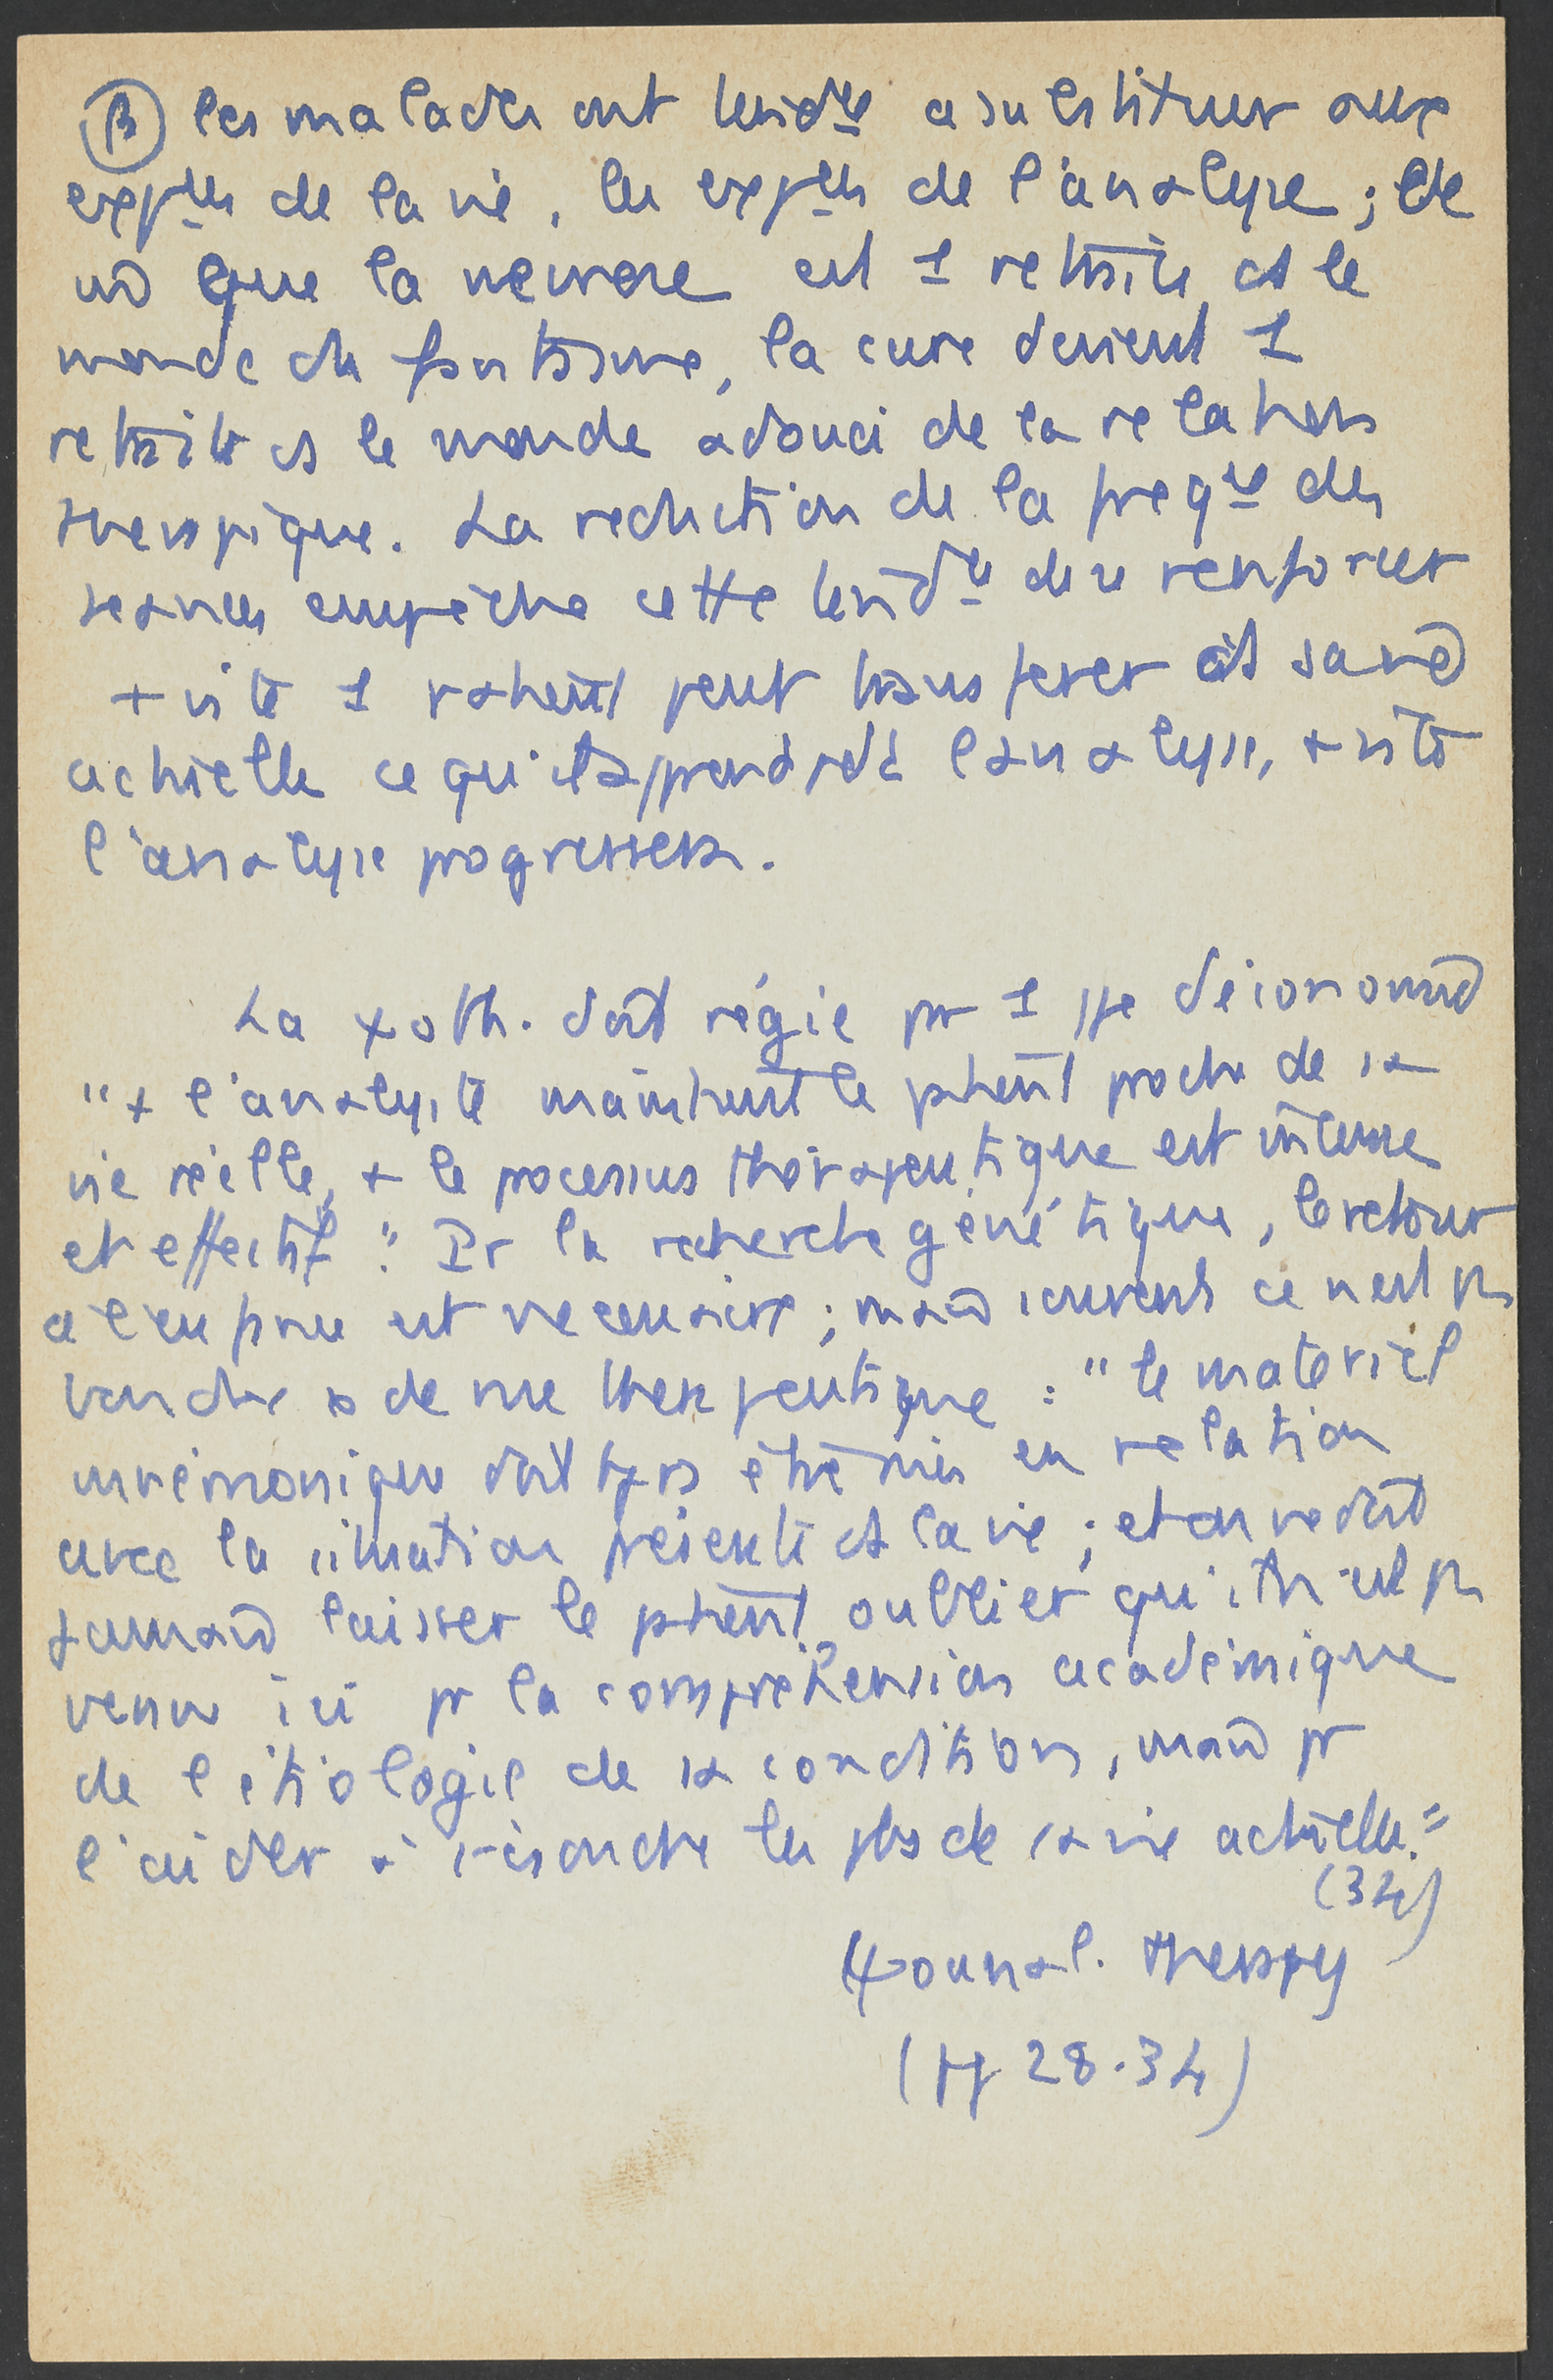 β les malades ont tendce a substituer aux
expces de la vie, les expces de l'analyse ; de
m que la nevrose est 1 retraite ds le
monde du fantasme, la cure devient 1
retraite ds le monde adouci de la relation
therapique. La reduction de la freqce des
seances empeche cette tendce de se renforcer
+ vite 1 patient peut transferer ds sa vie
actuelle ce qu'il a appris pdt l'analyse, + vite
l'analyse progressera.
La ψoth. doit régie par 1 ppe d'économie
"+ l'analyste maintient le patient proche de sa
vie réelle, + le processus thérapeutique est intense
et effectif". Pr la recherche génétique, le retour
a l'enfance est necessaire ; mais souvent ce n'est pas
de vue therapeutique : "le matériel
mnémonique doit tjrs être mis en relation
avec la situation présente ds la vie ; et on ne doit
jamais laisser le patient oublier qu'il n'est pas
venu ici pr la compréhension académique
de l'étiologie de sa condition, mais pr
l'aider à résoudre les pbs de sa vie actuelle."
(34)
ψoanal. therapy
(pp 28.34)